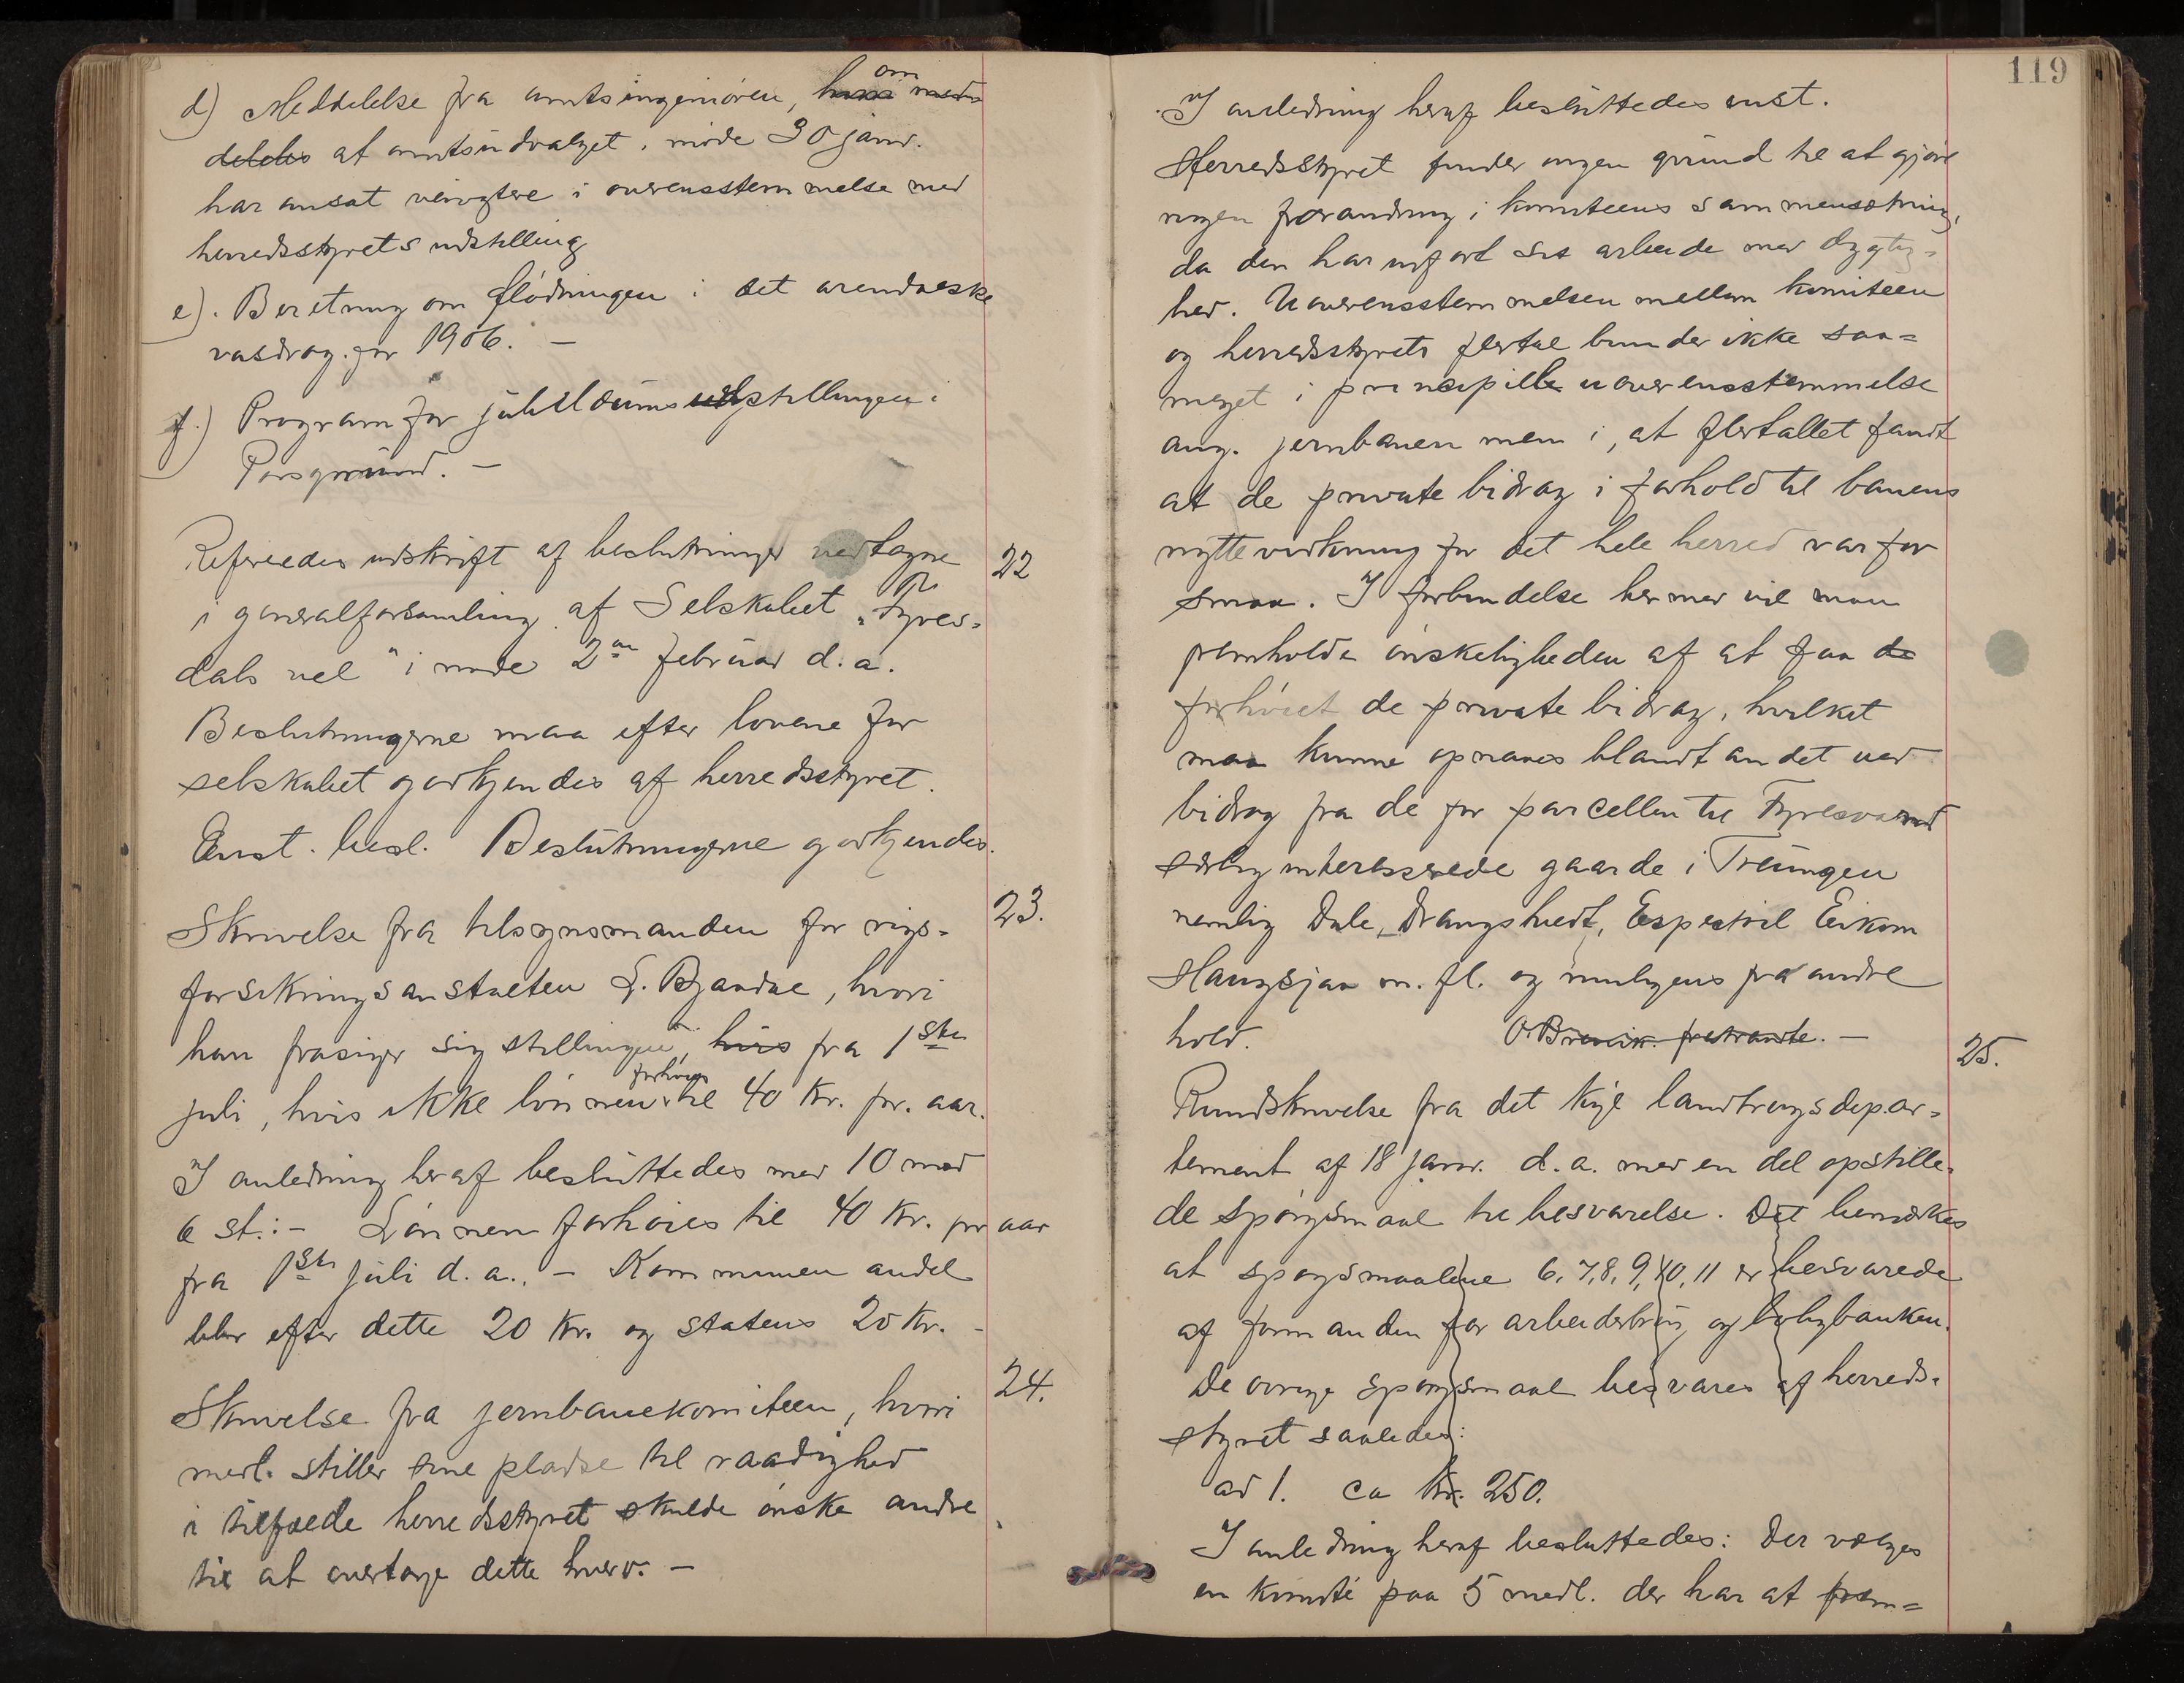 d) Meddelelse fra amtsingeniøren, hvori om med-
deleles at amtsudvalget i møde 30 janr.
har ansat veivogtere i overensstemmelse med
herredsstyrets indstilling
e). Beretning om flødningen i det arendalske
vasdrag for 1906. –
f.) Program for jubilæumsudstillingen i
Porsgrund. –
Refereedes udskrift af beslutninger vedtagne 22
i generalforsamling af Selskabet "Fyres-
dals vel" i møde 2en februar d.a.
Beslutningerne maa efter lovene for
selskabet godkjendes af herredsstyret.
Enst. besl. Beslutningerne godkjendes.
Skrivelse fra tilsynsmanden for rigs- 23.
forsikringsanstalten L. Bjaadal, hvori
han frasiger sig stillingen, hvis fra 1ste
juli, hvis ikke lønnen forhøies til 40 kr. pr. aar.
I anledning heraf besluttedes med 10 mod
6 st.:– Lønnen forhøies til 40 kr. pr aar
fra 1ste juli d.a.. – Kommunen andel
blir efter dette 20 kr. og statens 20 kr. –
Skrivelse fra jernbanekomiteen, hvori 24.
medl. stiller sine pladse til raadighed
i tilfælde herredsstyret skulde ønske andre
til at overtage dette hverv. –
119
I anledning heraf besluttedes enst.
Herredsstyret finder ingen grund til at gjøre
nogen forandring i komiteens sammensætning,
da den har udført sit arbeide med dygtig-
hed. Uoverensstemmelsen mellem komiteen
og herredsstyrets flertal bunder ikke saa-
meget i principielle uoverensstemmelse
ang. jernbanen men i, at flertallet fandt
at de private bidrag i forhold til banens
nyttevirkning for det hele herred var for
smaa. I forbindelse hermed vil man
fremholde ønskeligheden af at faa de
forhøiet de private bidrag, hvilket
maa kunne opnaaes blandt andet ved
bidrag fra de for parcellen til Fyresvand
særlig interesserede gaarde i Treungen
nemlig Dale, Drangshvedt, Espestøil Eikom
Haugsjaa m. fl. og muligens fra andre
hold. O. Brevik. fratraadte. –
Rundskrivelse fra det kgl landbrugsdepar- 25.
tement af 18 janr. d.a. med en del opstille-
de spørgsmaal til besvarelse. Det bemærkes
at spørgsmaalene 6, 7, 8, 9, 10, 11 er besvarede
af formanden for arbeiderbrug og boligbanken.
De øvrige spørgsmaal besvares af herreds-
styret saaledes:
ad 1. ca kr. 250.
I anledning heraf besluttedes: Der vælges
en komité paa 5 medl. der har at frem-